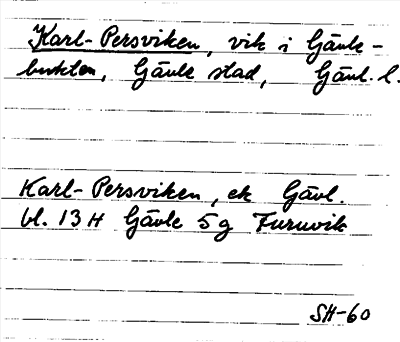 Karl-Persviken, vik i Gävle-
bukten, Gävle stad, Gävl. l.
Karl-Persviken, ek Gävl.
bl. 13 H Gävle 5g Furuvik
SH-60